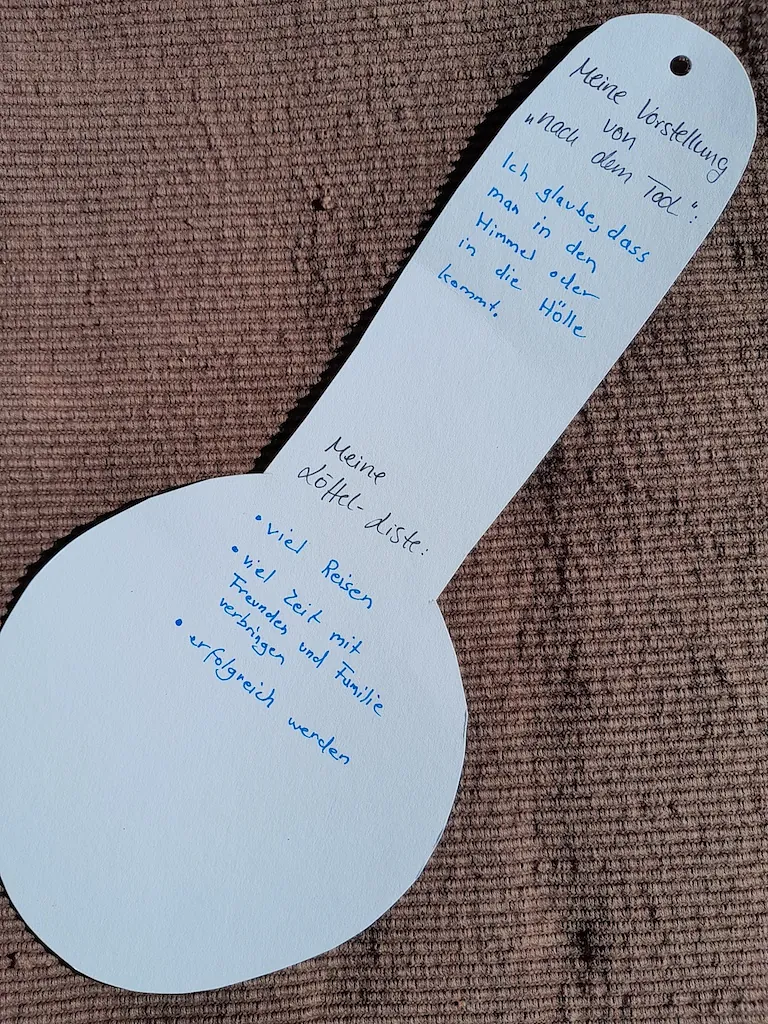 Meine Vorstellung
von
„nach dem Tod":
Ich glaube, dass
man in den
Himmel oder
in die Hölle
kommt.
Meine
Löffel-Liste:
• viel Reisen
• viel Zeit mit
Freunden und Familie
verbringen
• erfolgreich werden